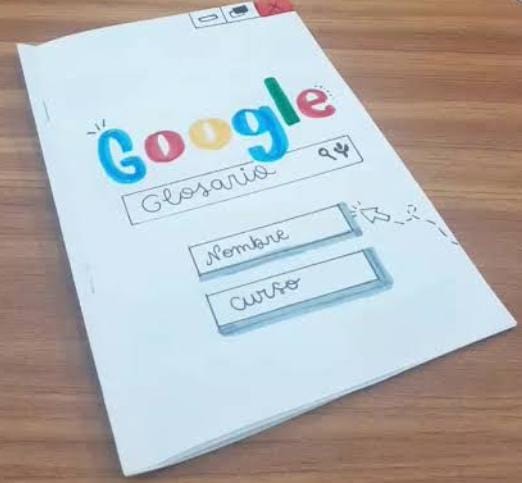 Google
Glosario
Nombre
Curso